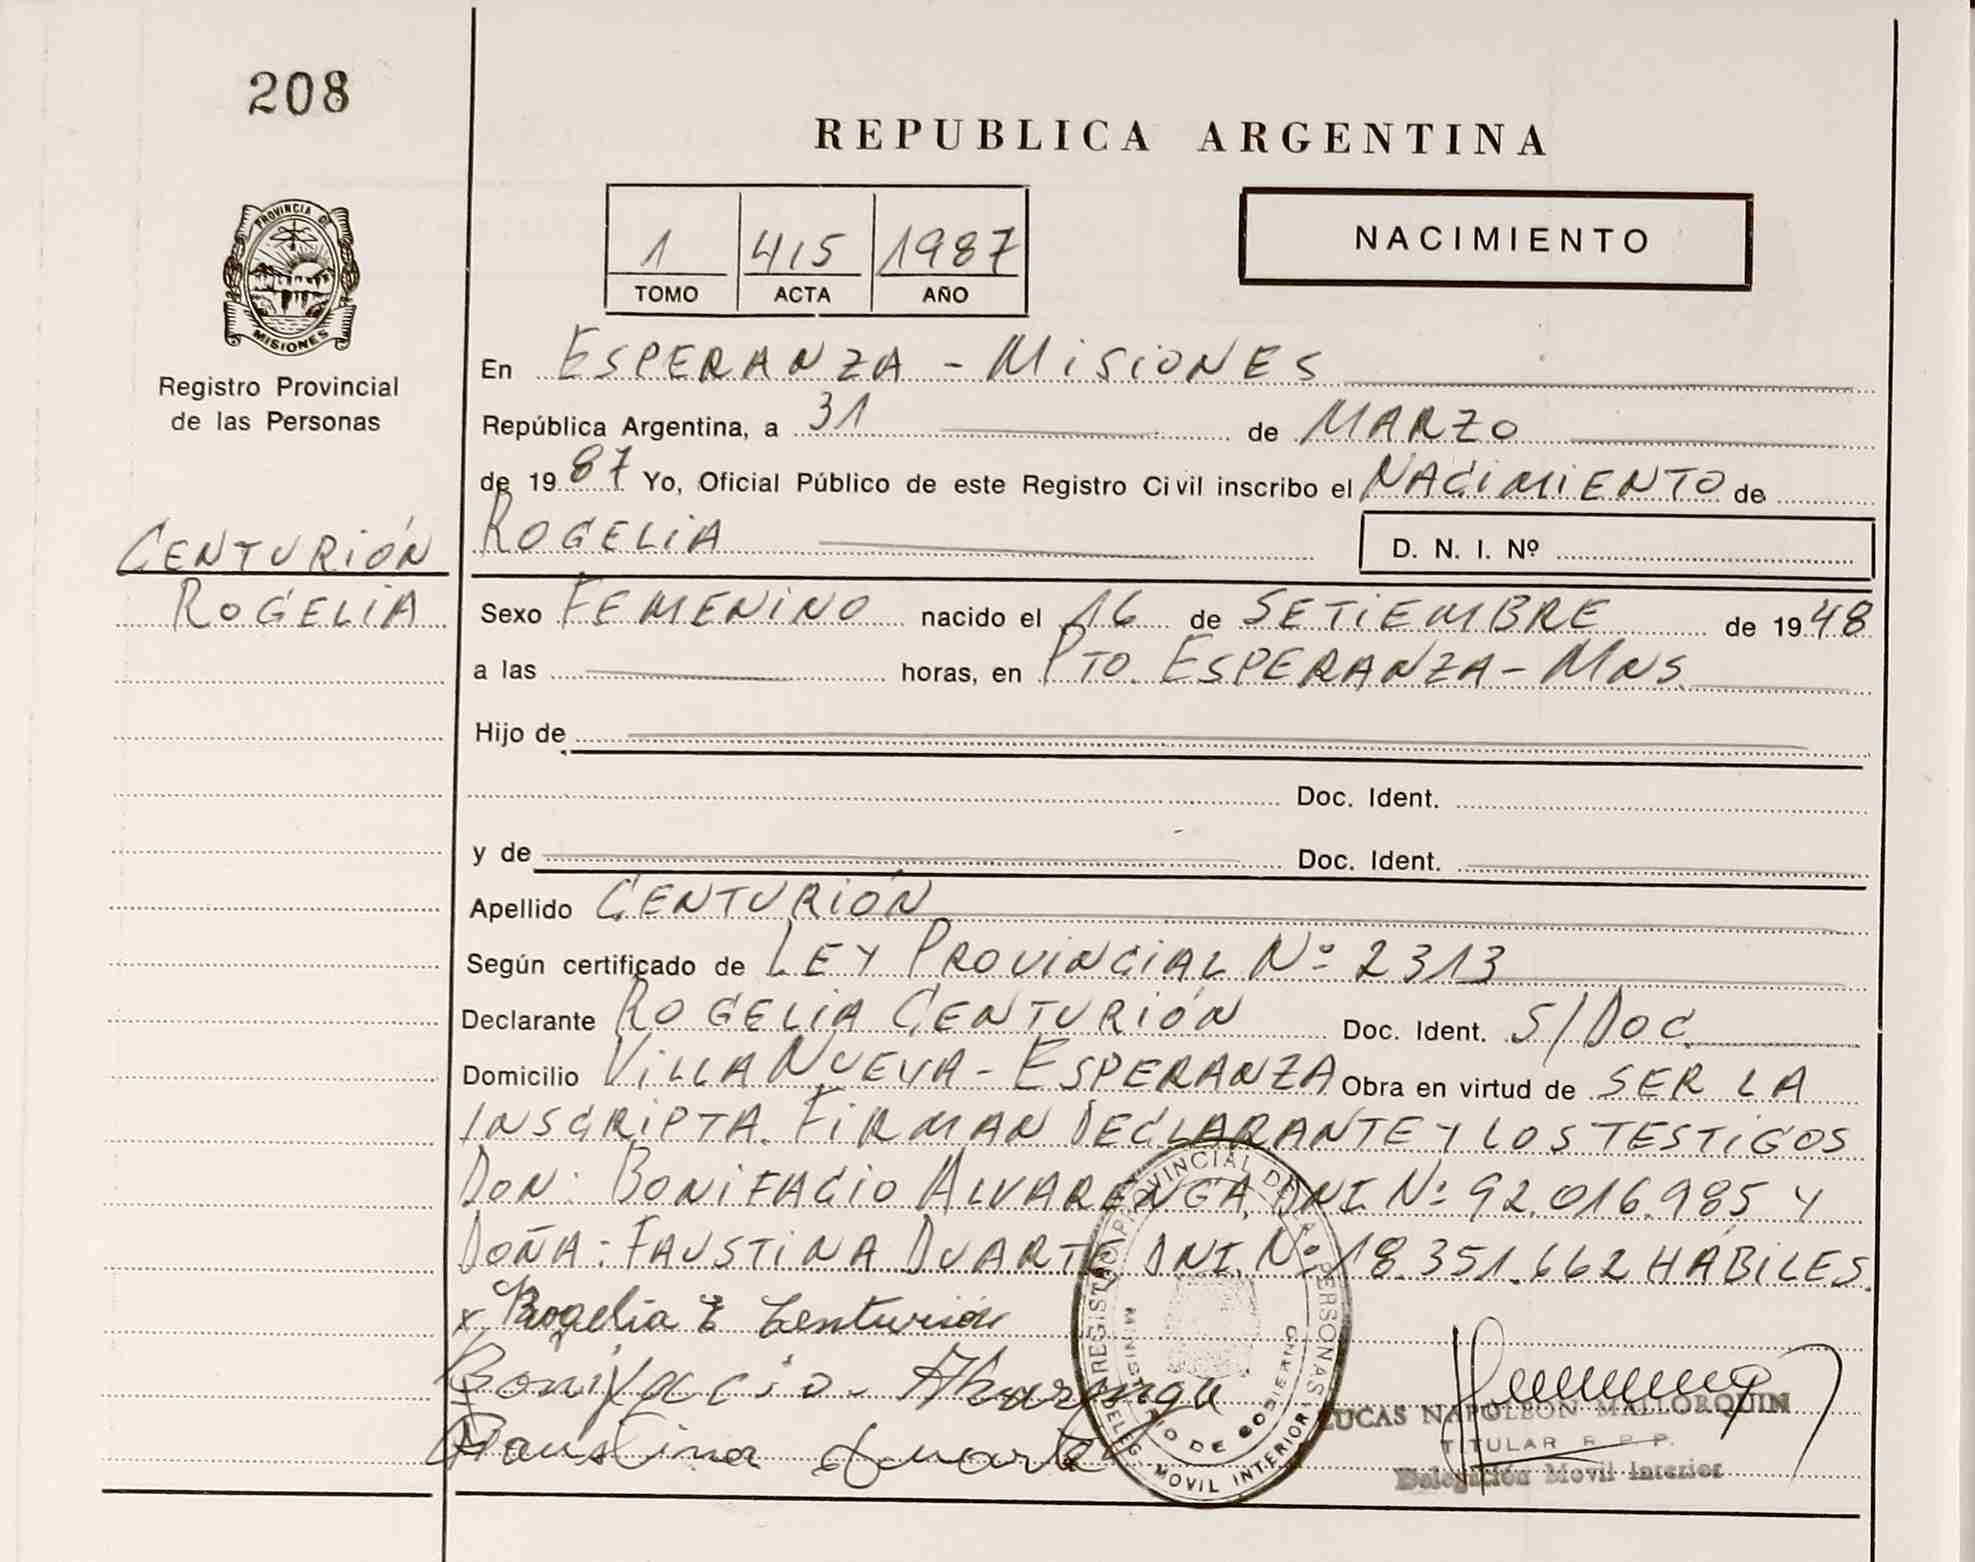 208
REPUBLICA ARGENTINA
PROVINCIA DE
MISIONES
1 415 1987
TOMO ACTA AÑO
NACIMIENTO
Registro Provincial
de las Personas
En ESPERANZA - MISIONES
República Argentina, a 31 de MARZO
de 1987 Yo, Oficial Público de este Registro Civil inscribo el NACIMIENTO de
CENTURIÓN
ROGELIA
ROGELIA D. N. I. Nº
Sexo FEMENINO nacido el 16 de SETIEMBRE de 1948
a las horas, en PTO. ESPERANZA - MNS.
Hijo de
Doc. Ident.
y de Doc. Ident.
Apellido CENTURIÓN
Según certificado de LEY PROVINCIAL Nº 2313
Declarante ROGELIA CENTURIÓN Doc. Ident. S/DOC.
Domicilio VILLA NUEVA - ESPERANZA Obra en virtud de SER LA
INSCRIPTA. FIRMAN DECLARANTE Y LOS TESTIGOS
DON: BONIFACIO ALVARENGA, DNI. Nº 92.016.985 Y
DOÑA: FAUSTINA DUARTE DNI. Nº 18.351.662 HÁBILES.
x Rogelia E Centurión
Bonifacio Alvarenga
Faustina Duarte
REGISTRO PROVINCIAL DE LAS PERSONAS
DELEG. MOVIL INTERIOR
LUCAS NAPOLEON MALLORQUIN
TITULAR R. P. P.
Delegación Movil Interior